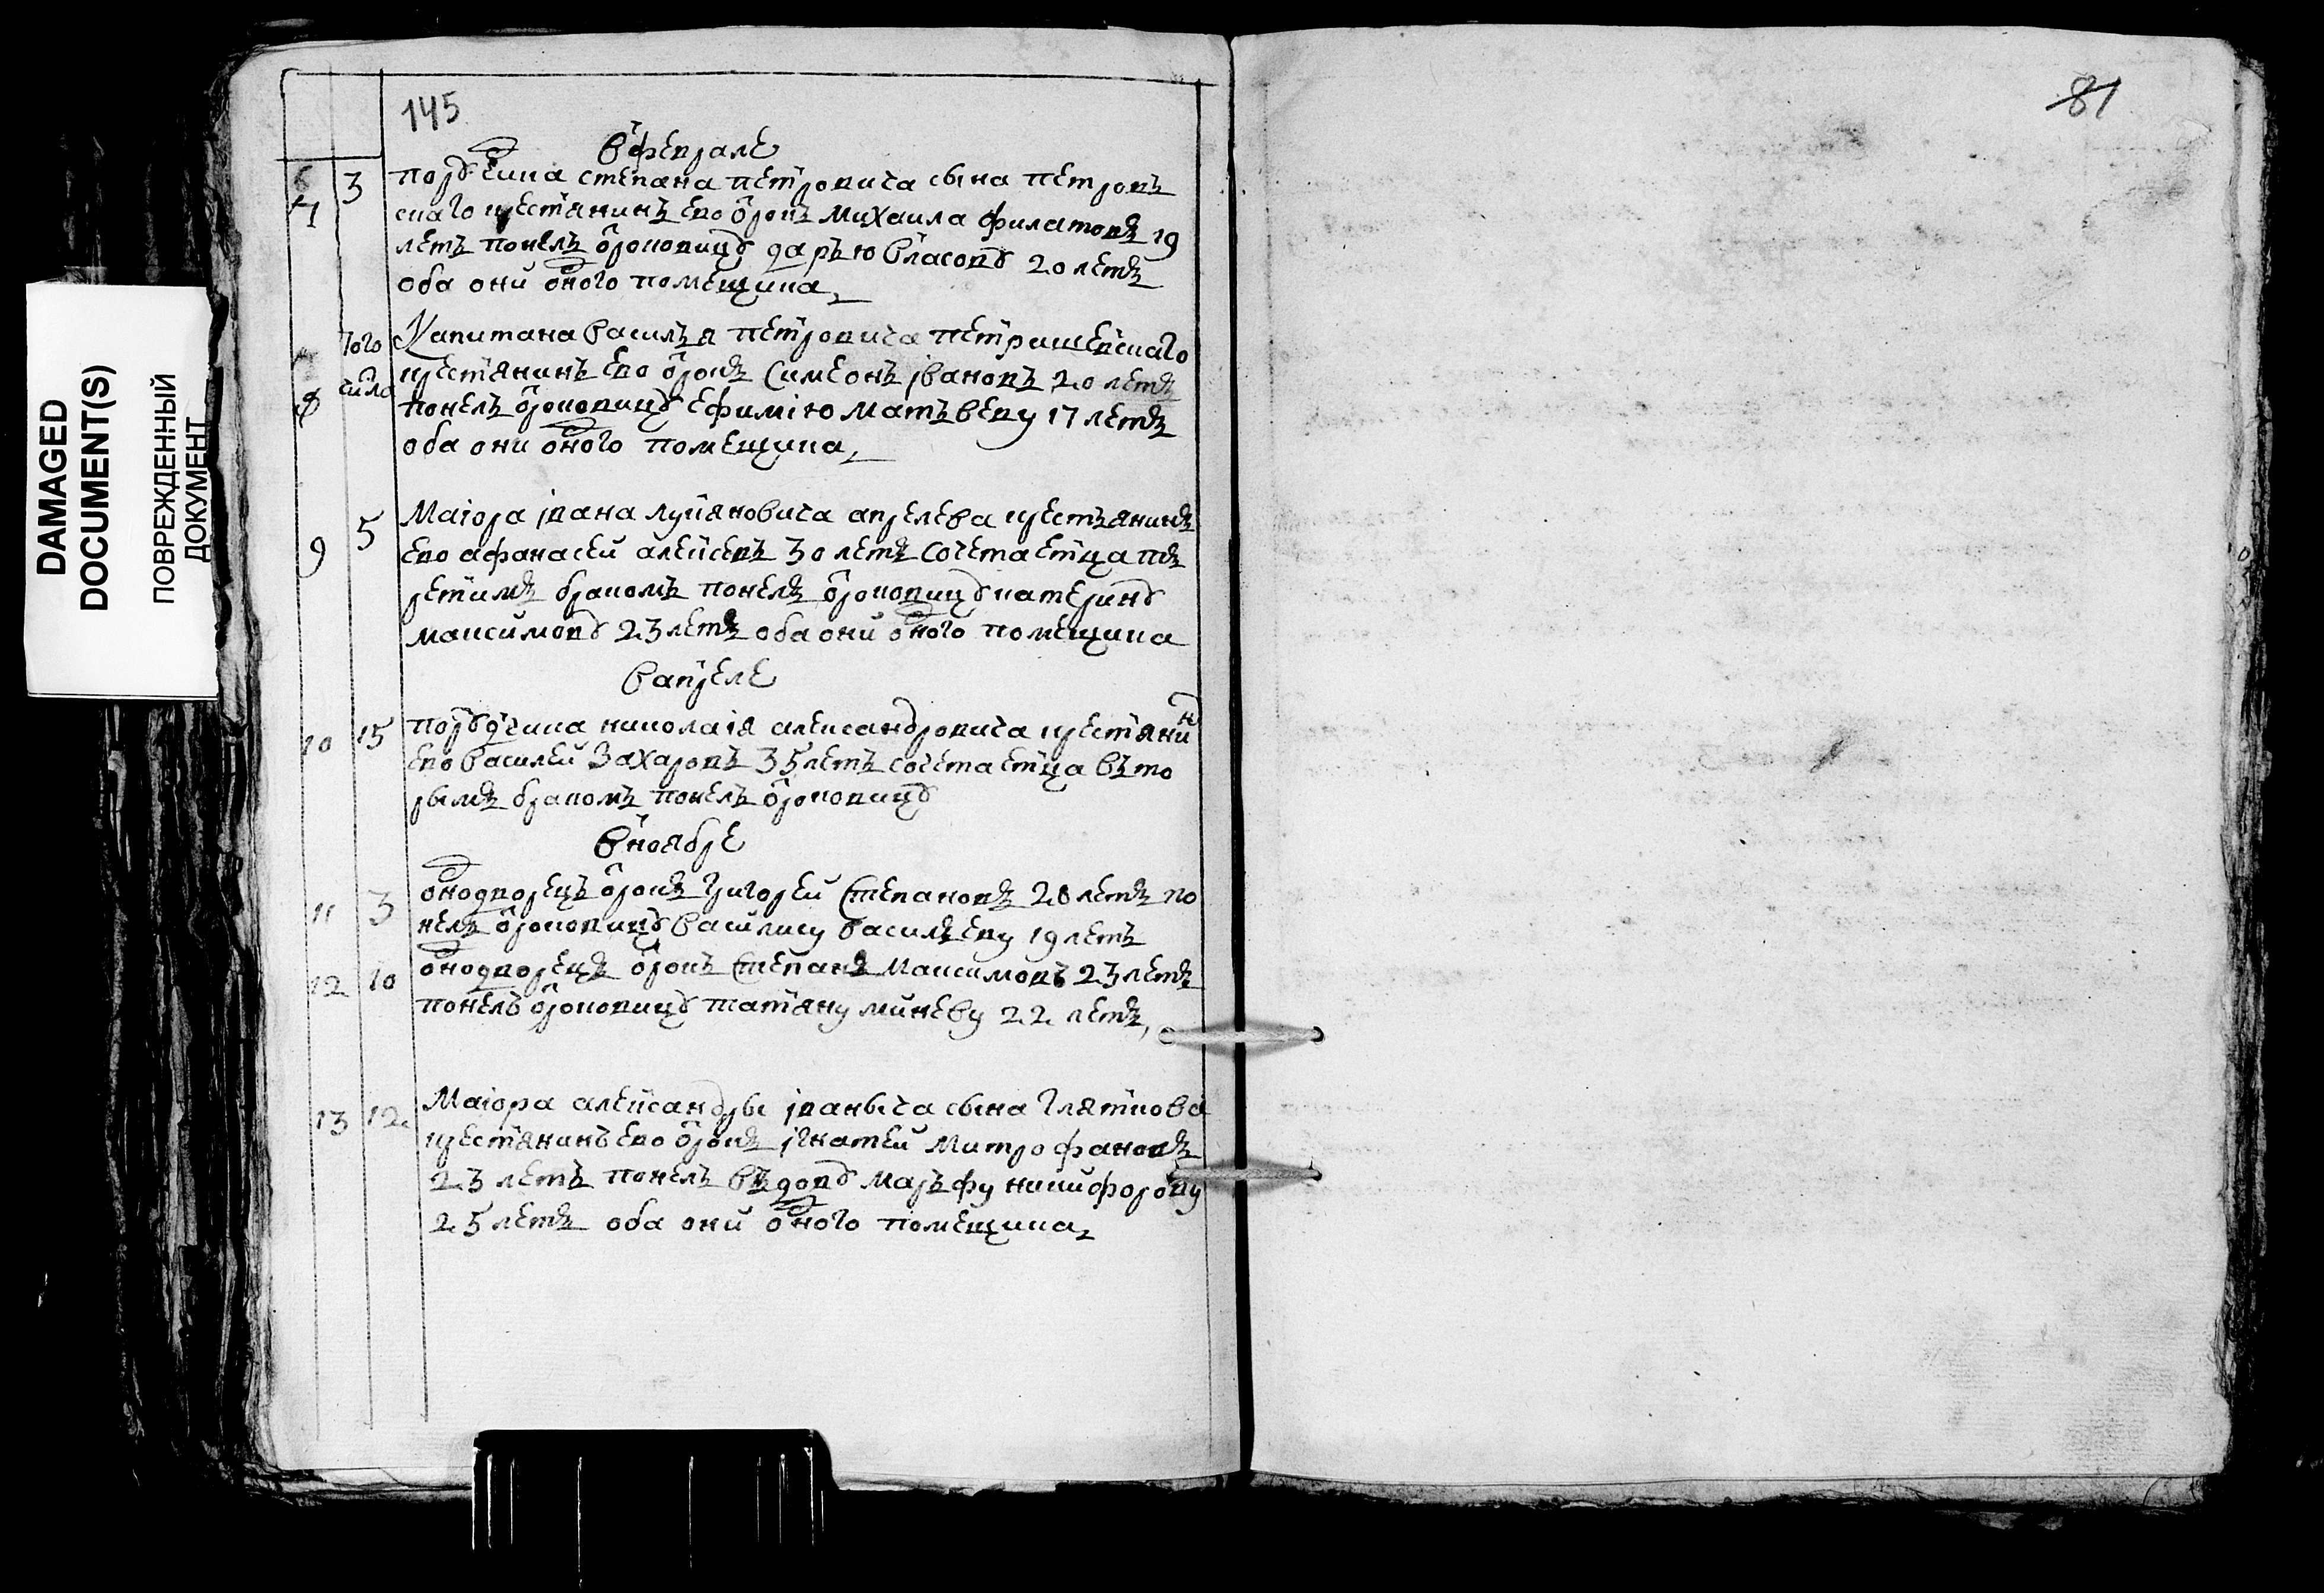 145
81
DAMAGED
DOCUMENT(S)
ПОВРЕЖДЕННЫЙ
ДОКУМЕНТ
в феврале
7 3 порутчика степана петровича сына петровъ
скаго крестьянинъ ево отрокъ михаила филатовъ 19
летъ понелъ отроковицу дарью власову 20 летъ
оба они одного помещика
8 того числа Капитана василья петровича петришевскаго
крестьянинъ ево отрокъ симеонъ iвановъ 20 летъ
понелъ отроковицу ефимiю матъвеву 17 летъ
оба они одного помещика
9 5 Маiора iвана лукяновича апрелева крестъянинъ
ево афанасей алексевъ 30 летъ сочетаетца пе
ретимъ бракомъ понелъ отроковицу катерину
максимову 23 летъ оба они одного помещика
в апреле
10 15 порутчика николаiя александровича крестьянин
ево василей захаровъ 35 летъ сочетаетца въто
рымъ бракомъ понелъ отроковицу
в ноябре
11 3 однодворецъ отрокъ григорей степановъ 20 летъ по
нелъ отроковицу василису васильеву 19 летъ
12 10 однодворецъ отрокъ степанъ максимовъ 23 летъ
понелъ отроковицу татьяну миневу 22 летъ
13 12 Маiора александры iваныча сына гляткова
крестьянинъ ево отрокъ iгнатей митрофановъ
23 летъ понелъ въдову маръфу никифорову
25 летъ оба они одного помещика